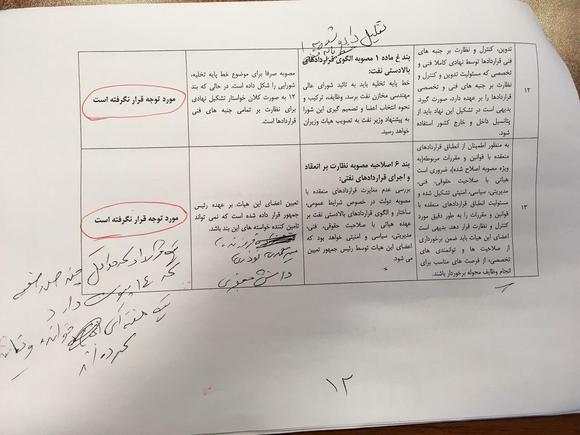 تقلیل داده شد
۱۲
تدوین، کنترل و نظارت بر جنبه های
فنی قراردادها توسط نهادی کاملا فنی و
تخصصی که مسئولیت تدوین و کنترل و
نظارت بر جنبه های فنی و تخصصی
قراردادها را بر عهده دارد، صورت گیرد.
بدیهی است در تشکیل این نهاد باید از
پتانسیل داخل و خارج کشور استفاده
شود.
بند غ ماده ۱ مصوبه الگوی قراردادهای
بالادستی نفت:
خط پایه تخلیه باید به تائید شورای عالی
مهندسی مخازن نفت برسد. وظایف، ترکیب و
نحوه انتخاب اعضا و تصمیم گیری این شورا
به پیشنهاد وزیر نفت به تصویب هیات وزیران
خواهد رسید.
مصوبه صرفا برای موضوع خط پایه تخلیه،
شورایی را شکل داده است. در حالی که بند
۱۲ به صورت کلان خواستار تشکیل نهادی
برای نظارت بر تمامی جنبه های فنی
قراردادها است.
مورد توجه قرار نگرفته است
۱۳
به منظور اطمینان از انطباق قراردادهای
منعقده با قوانین و مقررات مربوطه(به
ویژه مصوبه اصلاح شده)، ضروری است
هیاتی با صلاحیت حقوقی، فنی،
مدیریتی، سیاسی، امنیتی تشکیل شده و
مسئولیت انطباق قراردادهای منعقده با
قوانین و مقررات را به طور دقیق مورد
کنترل و نظارت قرار دهد. بدیهی است
اعضای این هیات باید ضمن برخورداری
از صلاحیت ها و توانمندی های
تخصصی، از فرصت های مناسب برای
انجام وظایف محوله برخوردار باشند.
بند ۶ اصلاحیه مصوبه نظارت بر انعقاد
و اجرای قراردادهای نفتی:
بررسی عدم مغایرت قراردادهای منعقده با
مصوبه دولت در خصوص شرایط عمومی،
ساختار و الگوی قراردادهای بالادستی نفت بر
عهده هیاتی با صلاحیت حقوقی، فنی،
مدیریتی، سیاسی و امنیتی خواهد بود که
اعضای این هیات توسط رئیس جمهور تعیین
می شود.
تعیین اعضای این هیات، بر عهده رئیس
جمهور قرار داده شده است که نمی تواند
تامین کننده خواسته های این بند باشد.
مورد توجه قرار نگرفته است
۱۴ پیوست دارد
یک هفته ای
۱۲